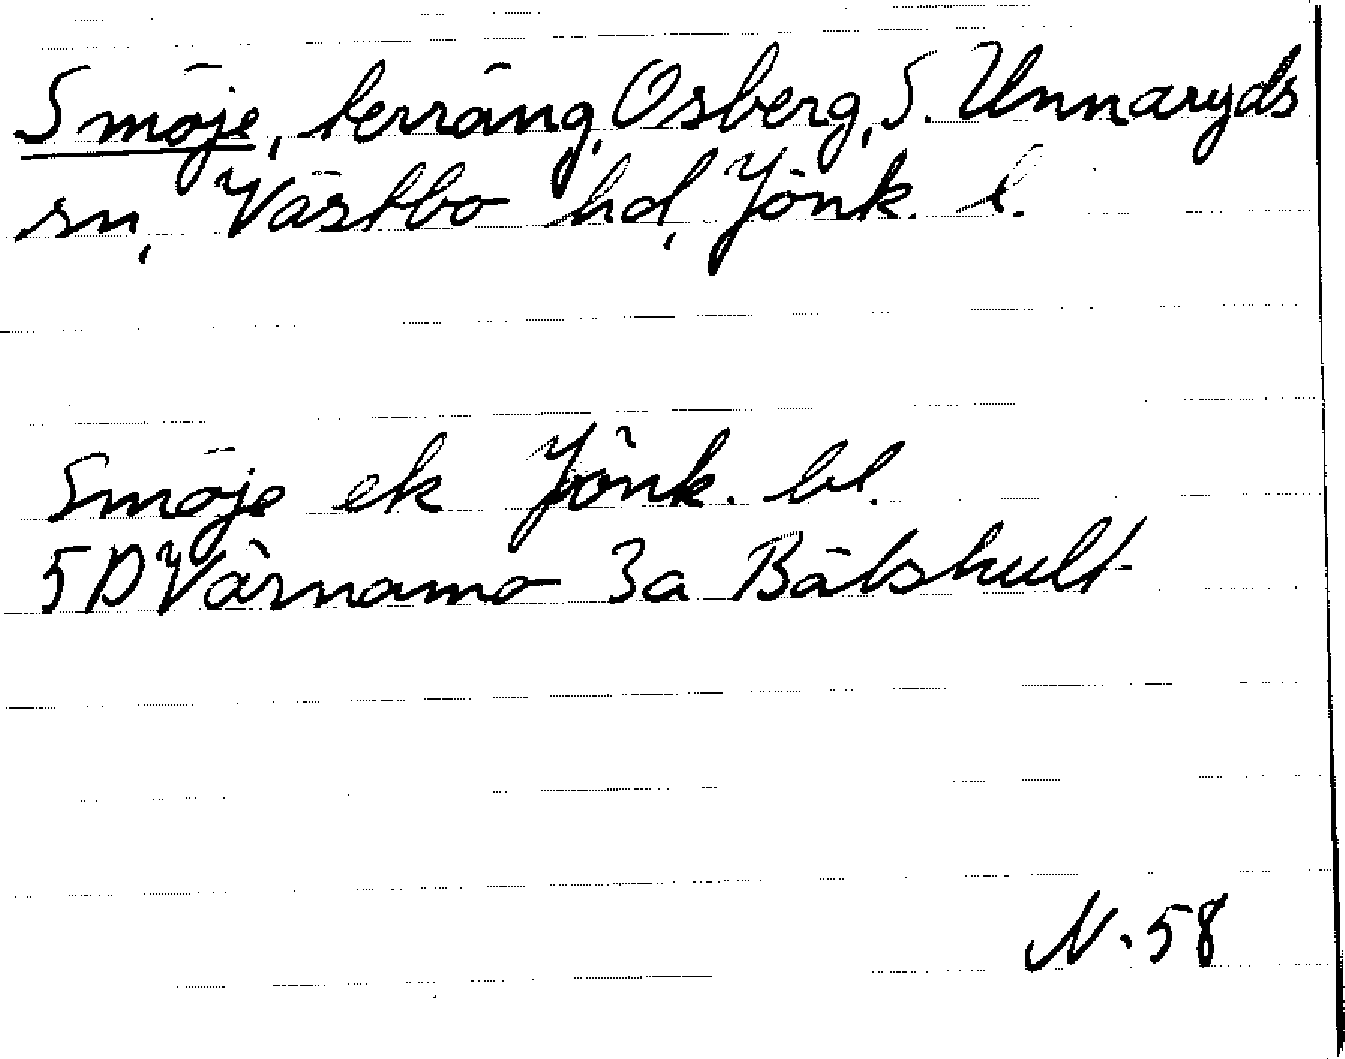 Smöje, terräng, Osberg, S. Unnaryds
sn, Västbo hd, Jönk. l.
Smöje ek Jönk. bl.
5D Värnamo 3a Bälshult
N. 58